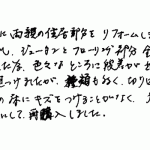 に両親の住居部分をリフォームし
れ、ジュータンとフローリング部分全
た為、色々なところに段差が
つけましたが、種類も多く、切り
の床にキズをつけることがなく、
にして、再購入しました。